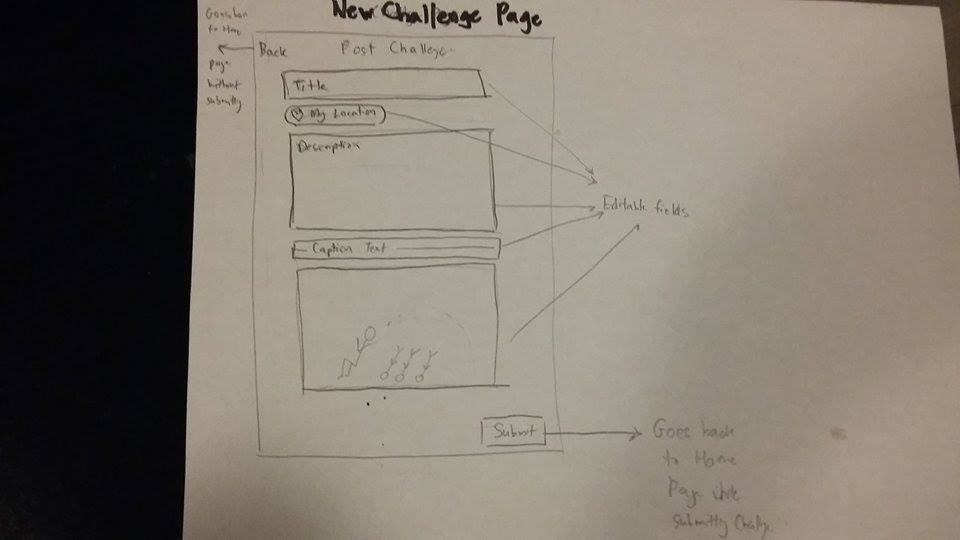 New Challenge Page
Goes back
to Home
page
without
submitting
Back
Post Challenge
Title
My Location
Description
Editable fields
Caption Text
Submit
Goes back
to Home
Page while
submitting Challenge